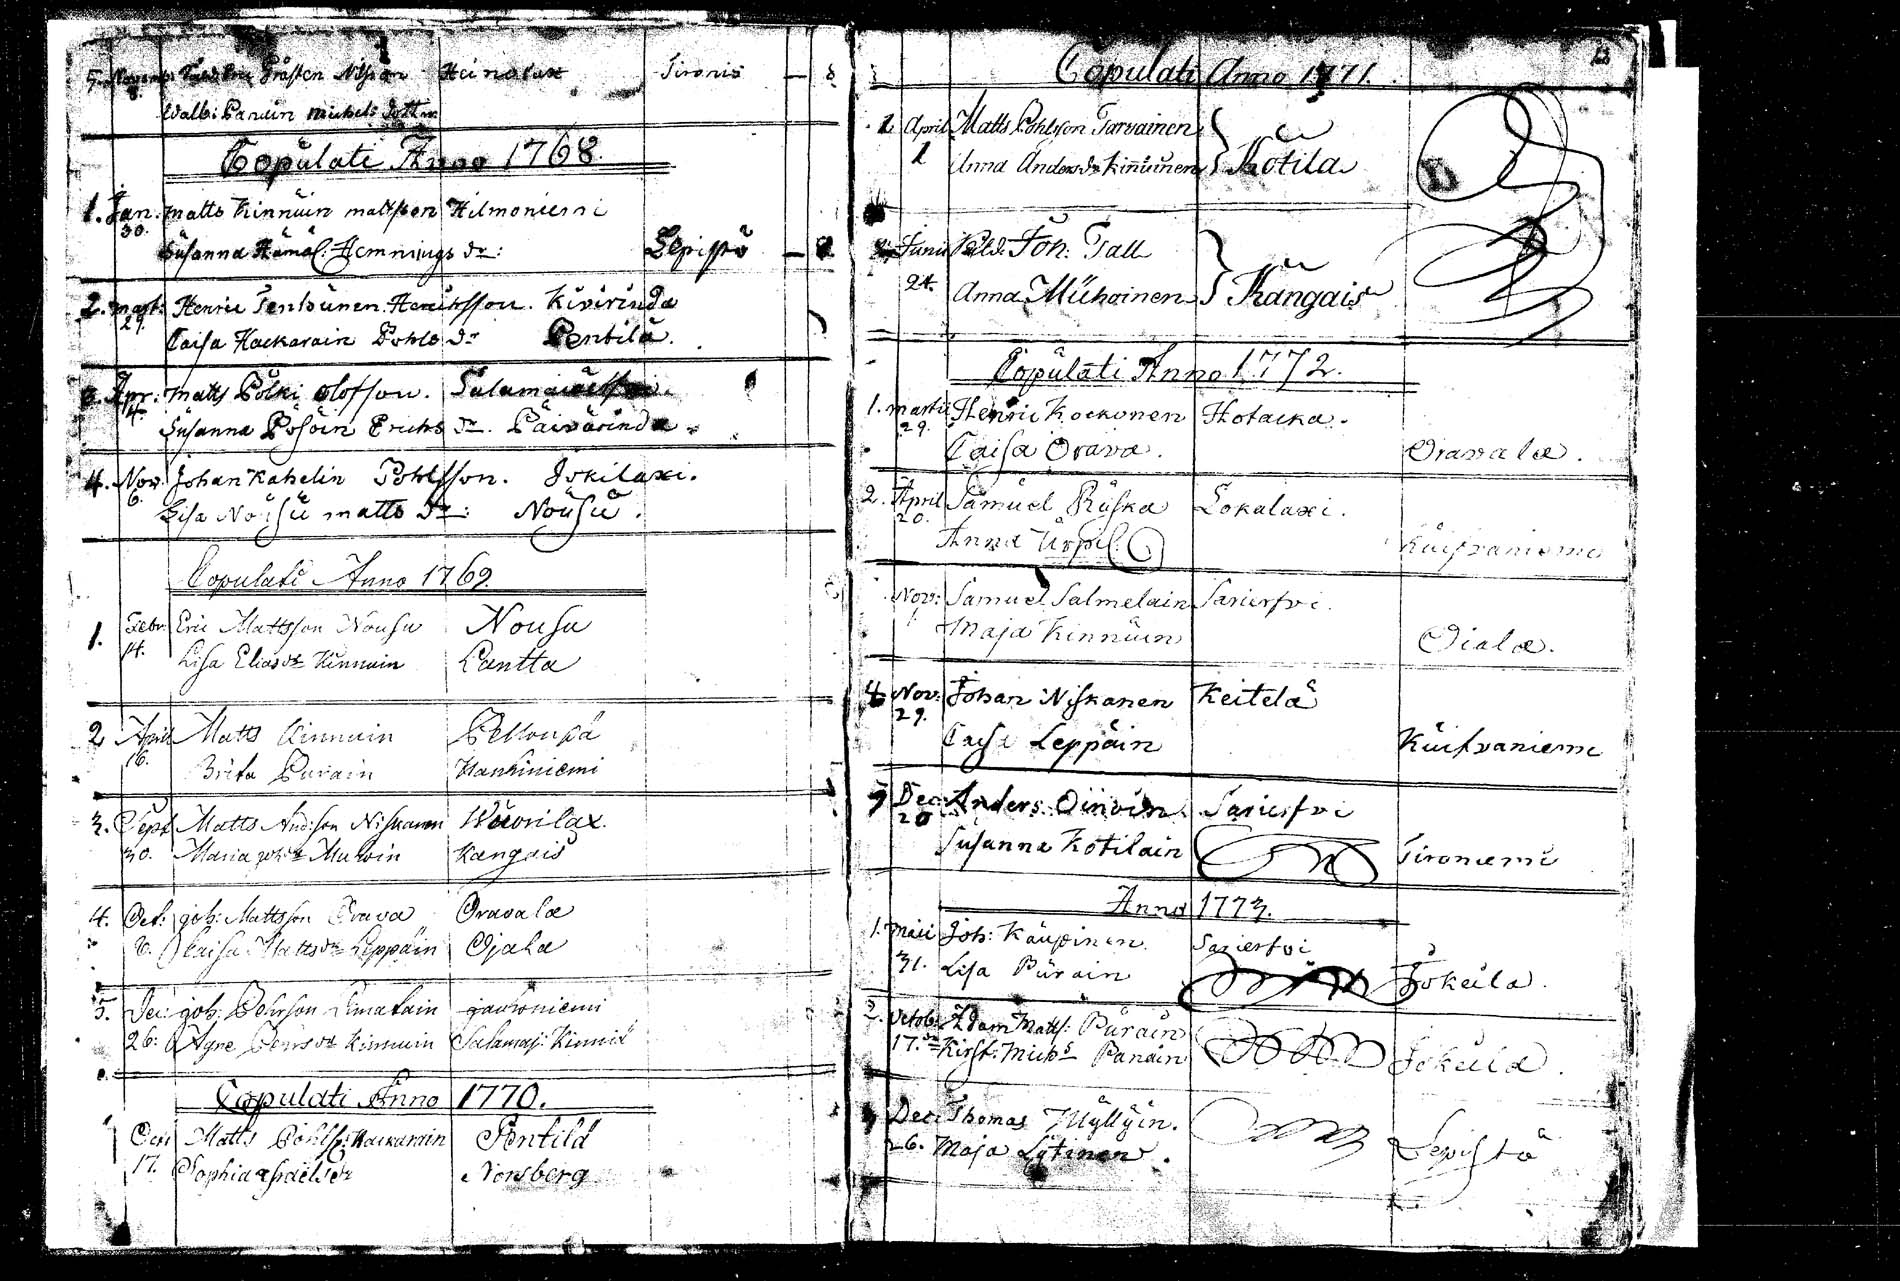 5. Novemb: Eric Gråsten Nilsson Heinolax Tironie
8. Walb: Paruin Michels dotter
Copulati Anno 1768.
1. Jan. Matts Kinnuin Mattsson Hilmoniemi
30. Susanna Hämäl: Hemnings dr: Lepistö
2. Mart: Henric Tenhunen Henricsson. Kivirinda
29. Caisa Hackarain Pohls dr Pentilä.
3. Apr: Matts Pölki Olofsson.
4. Susanna Pösöin Erichs dr. Päivärinda.
4. Nov: Johan Kahelin Pohlsson. Jokilaxi.
6. Lisa Nousu Matts dr: Nousu.
Copulati Anno 1769.
1. Febr: Eric Mattsson Nousu Nousu
14. Lisa Elias dr Kinnuin Lantta
2 April Matts Kinnuin
16. Brita Purain Hankiniemi
3. Sept Matts Andsson Niskanen Wuorilax.
30. Maria Kangais
4. Oct: Joh: Mattsson Orava Oravala
6. Caisa Matts dr Leppäin Ojala
5. Dec: Joh: Pehrson Limatain
26: Agne Pehrs dr Kinnuin
Copulati Anno 1770.
Matts Pohlss: Hackarain Pentilä
17. Sophia Israels dr Norsberg
Copulati Anno 1771.
1 April Matts Pohlsson Tarvainen
1 Anna Anders dr Kinnunen Kotila
2. Junii Båld: Joh: Tall
24. Anna Muhoinen Kangais
Copulati Anno 1772.
1. Martii Henric Kockonen Hotacka.
29. Caisa Orava. Oravala.
2. April Samuel Ruska Lokalaxi.
20. Anna Kuifvaniemi
Nov: Samuel Salmelain Sarierfvi.
1 Maja Kinnuin Oiala.
4 Nov: Johan Niskanen Keitelä
29. Caisa Leppäin Kuifvaniemi
5 Dec: Anders Oinoin. Sarierfvi
20 Susanna Kotilain Tironiemi
Anno 1773.
1. Maii Joh: Kaupinen. Sarierfvi
31. Lisa Purain Jokela.
2. Octob: Adam Matts: Purain
17. Kirst: Michs dr Panain Jokela.
3 Dec: Thomas Myllyin.
26. Maja Lytinen. Lepistö